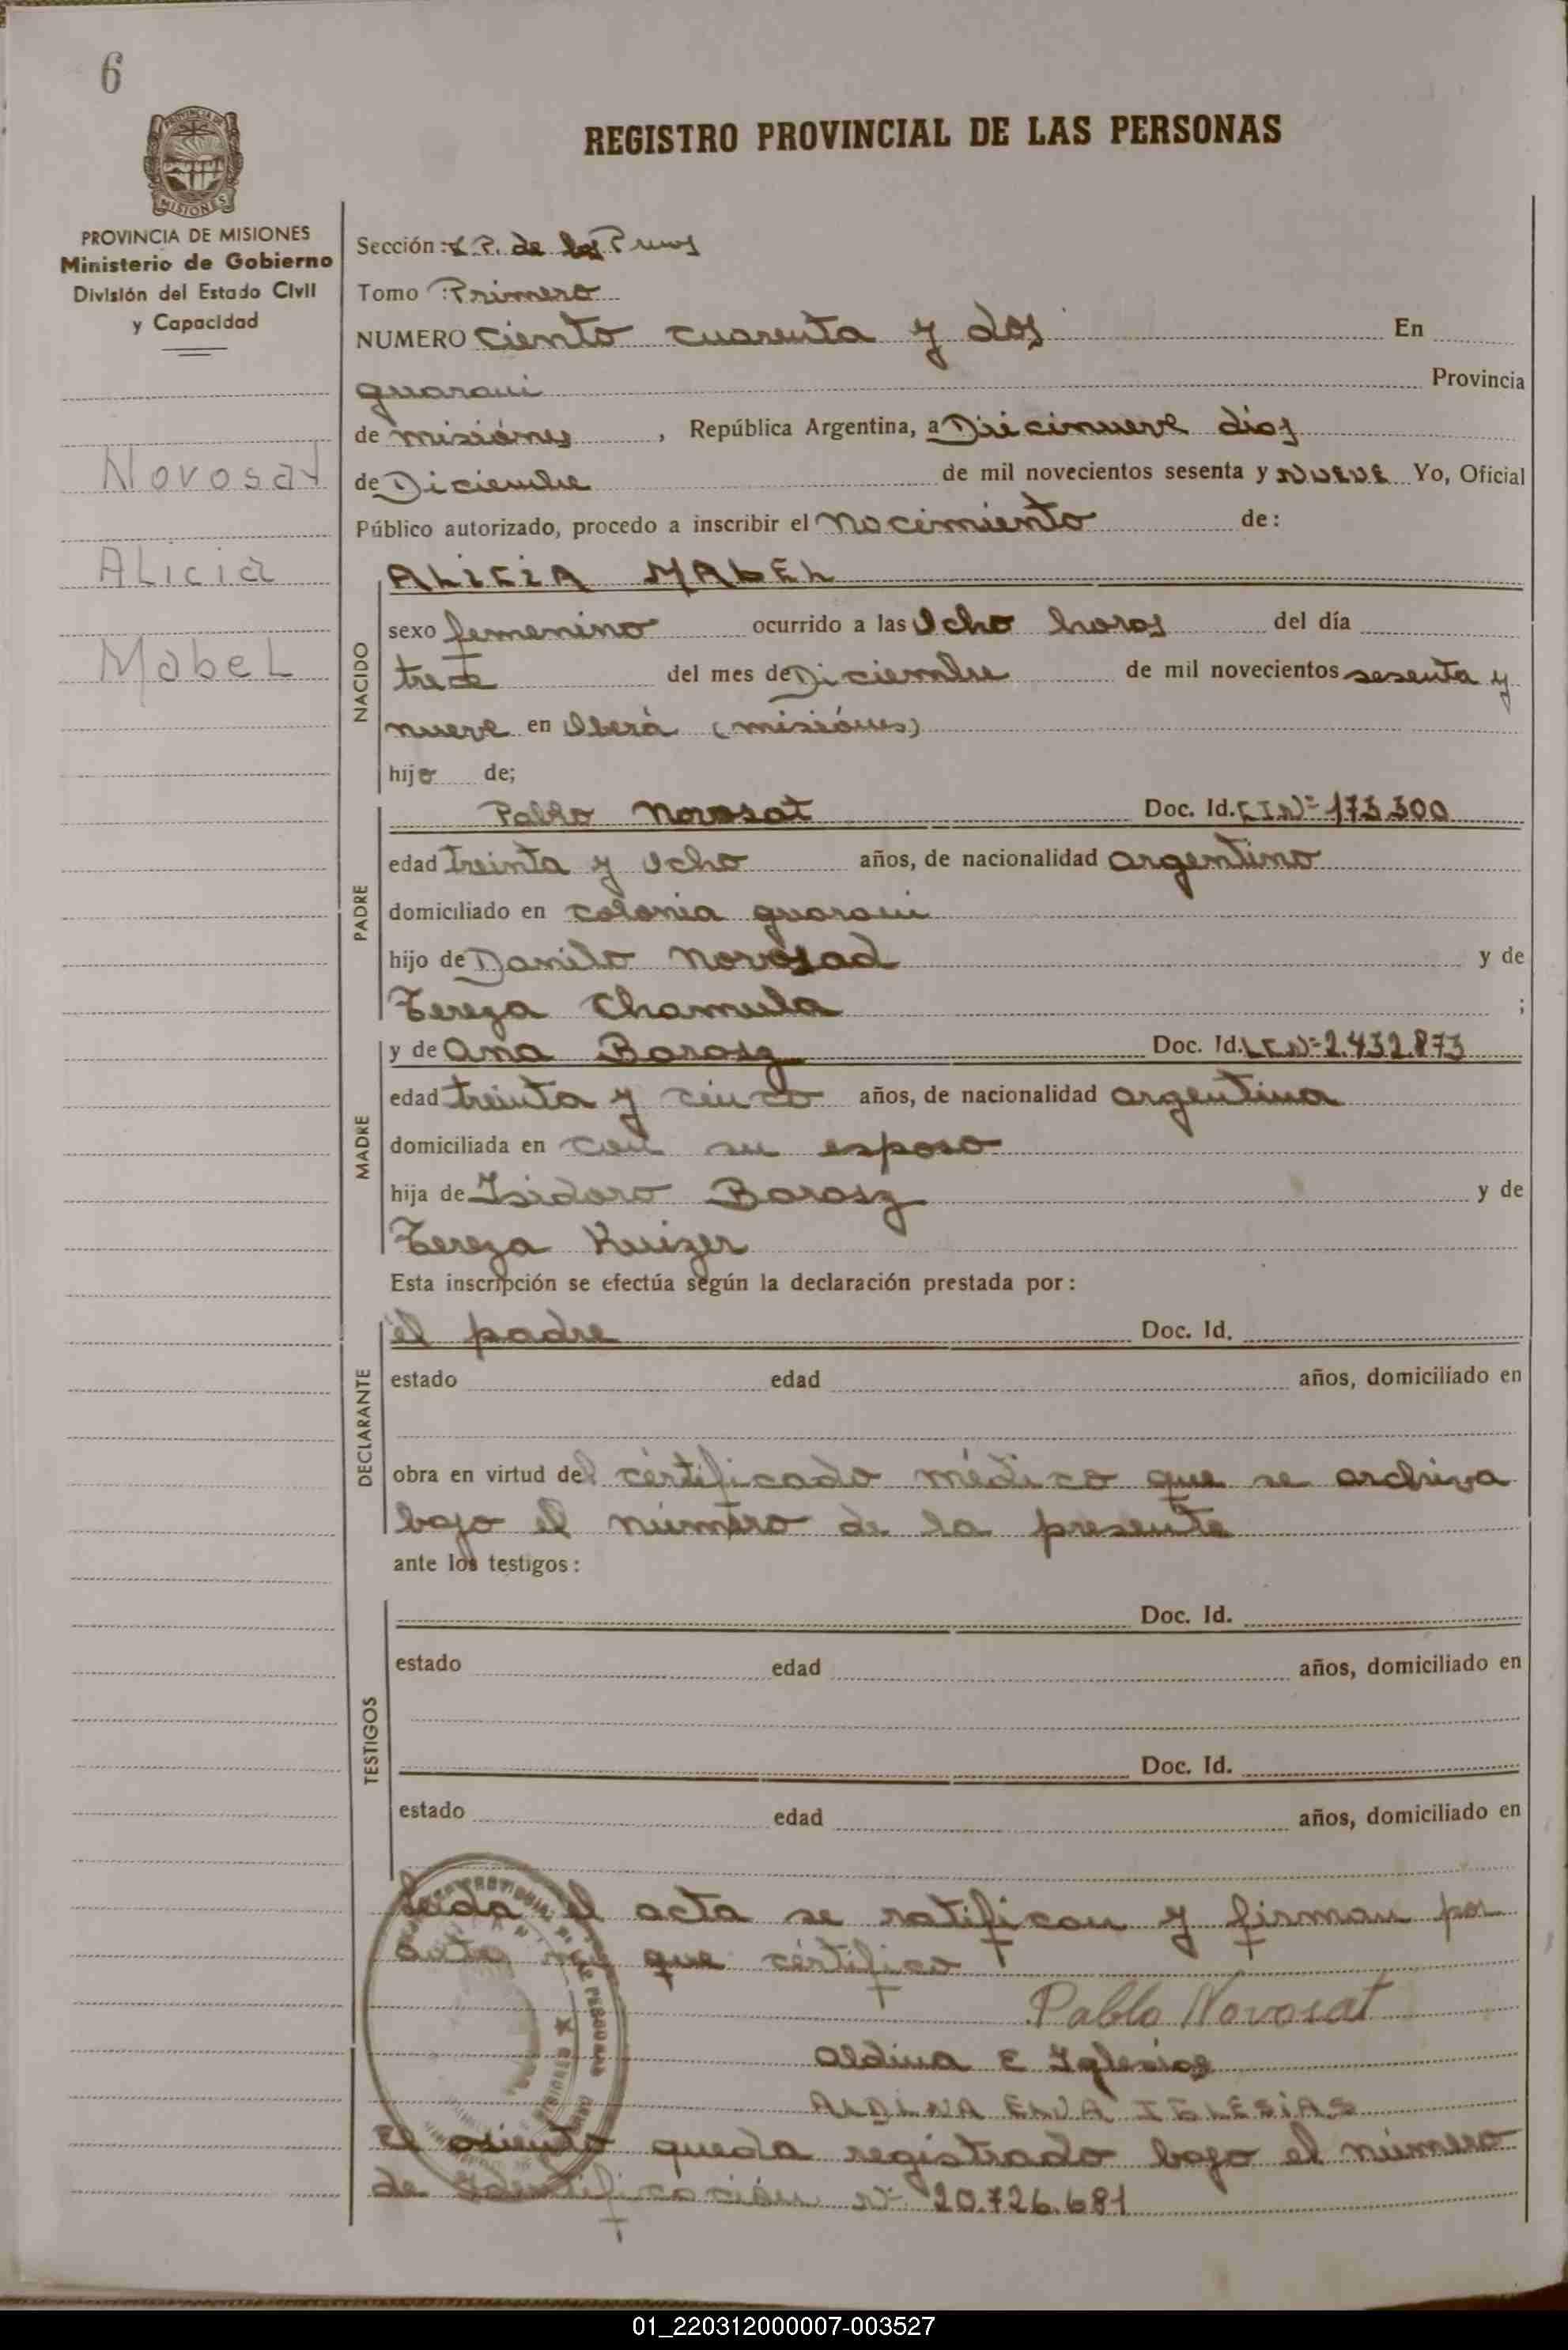 6
REGISTRO PROVINCIAL DE LAS PERSONAS
PROVINCIA DE MISIONES
Ministerio de Gobierno
División del Estado Civil
y Capacidad
Novosat
Alicia
Mabel
Sección: R.P. de las
Tomo Primero
NUMERO Ciento cuarenta y dos En
guarani Provincia
de misiónes, República Argentina, a Diicinueve dias
de Diciembre de mil novecientos sesenta y NUEVE Yo, Oficial
Público autorizado, procedo a inscribir el Nacimiento de:
NACIDO
ALICIA MABEL
sexo femenino ocurrido a las Ocho horas del día
trece del mes de Diciembre de mil novecientos sesenta y
nueve en Oberá (misiónes)
hijo de;
PADRE
Pablo Novosat Doc. Id. C I Nº 173.300
edad treinta y Ocho años, de nacionalidad argentino
domiciliado en colonia guarani
hijo de Danilo Novosad y de
Tereza Chamula ;
MADRE
y de Ana Barasz Doc. Id. L C Nº 2.432.873
edad treinta y cinco años, de nacionalidad argentina
domiciliada en con su esposo
hija de Isidoro Barasz y de
Tereza Kuizer
Esta inscripción se efectúa según la declaración prestada por:
DECLARANTE
el padre Doc. Id.
estado edad años, domiciliado en
obra en virtud del cértificado médico que se archiva
bajo el número de la presente
ante los testigos:
TESTIGOS
Doc. Id.
estado edad años, domiciliado en
Doc. Id.
estado edad años, domiciliado en
Leida el acta se ratifican y firman por
ante mi que cértifico
Pablo Novosat
Aldina E Iglesias
ALDINA ELVA IGLESIAS
El asiento queda registrado bajo el número
de Identificación Nº 20.726.681
01_220312000007-003527